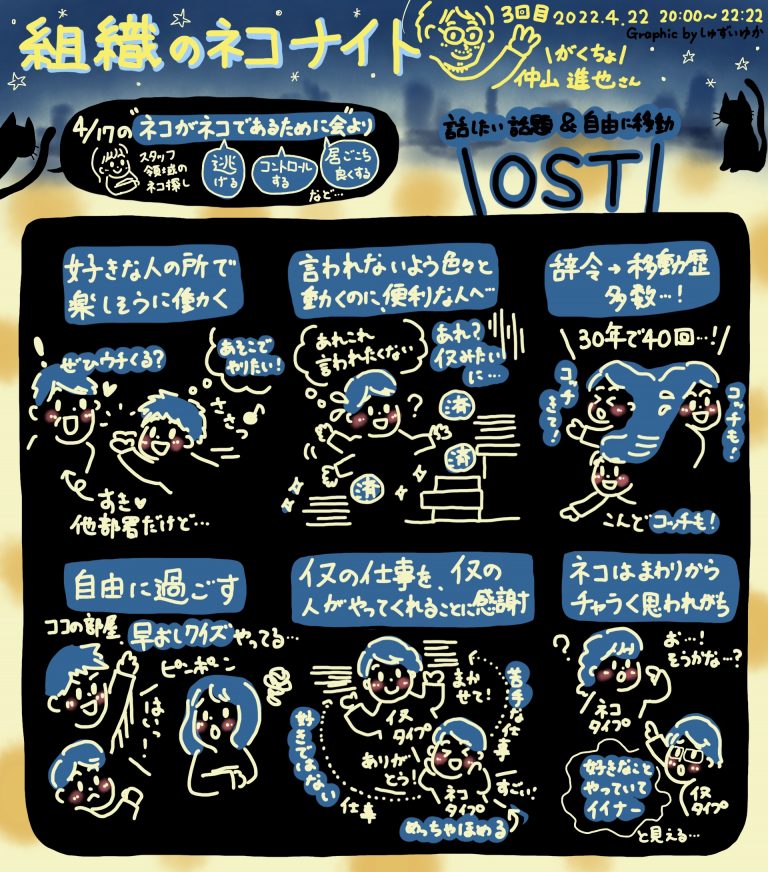 組織のネコナイト
3回目 2022.4.22 20:00〜22:22
Graphic by しゅずいゆか
\がくちょ/
仲山進也さん
4/17の"ネコがネコであるために会"より
スタッフ
領域の
ネコ探し
逃げる
コントロールする
居ごこち良くする
など…
話したい話題 & 自由に移動
\OST/
好きな人の所で
楽しそうに働かく
!
ぜひウチくる?
あそこで
やりたい!
ささっ♪
すき♥
他部署だけど…
言われないよう色々と
動くのに、便利な人へ…
あれこれ
言われたくない
あれ?
イヌみたい
に…
?
済
済
済
辞令→移動歴
多数…!
\30年で40回…!/
コッチ
きて!
コッチも!
こんどコッチも!
自由に過ごす
ココの部屋、早おしクイズやってる…
ピンポーン
はいっ!
イヌの仕事を、イヌの
人がやってくれることに感謝
まか
せて!
イヌ
タイプ
苦手な仕事
好きではない
仕事
ありが
とう!
ネコ
タイプ
すごい!
めっちゃほめる
ネコはまわりから
チャラく思われがち
?
お…!
そうかな…?
ネコ
タイプ
好きなこと
やっていて
イイナー
イヌ
タイプ
と見える…